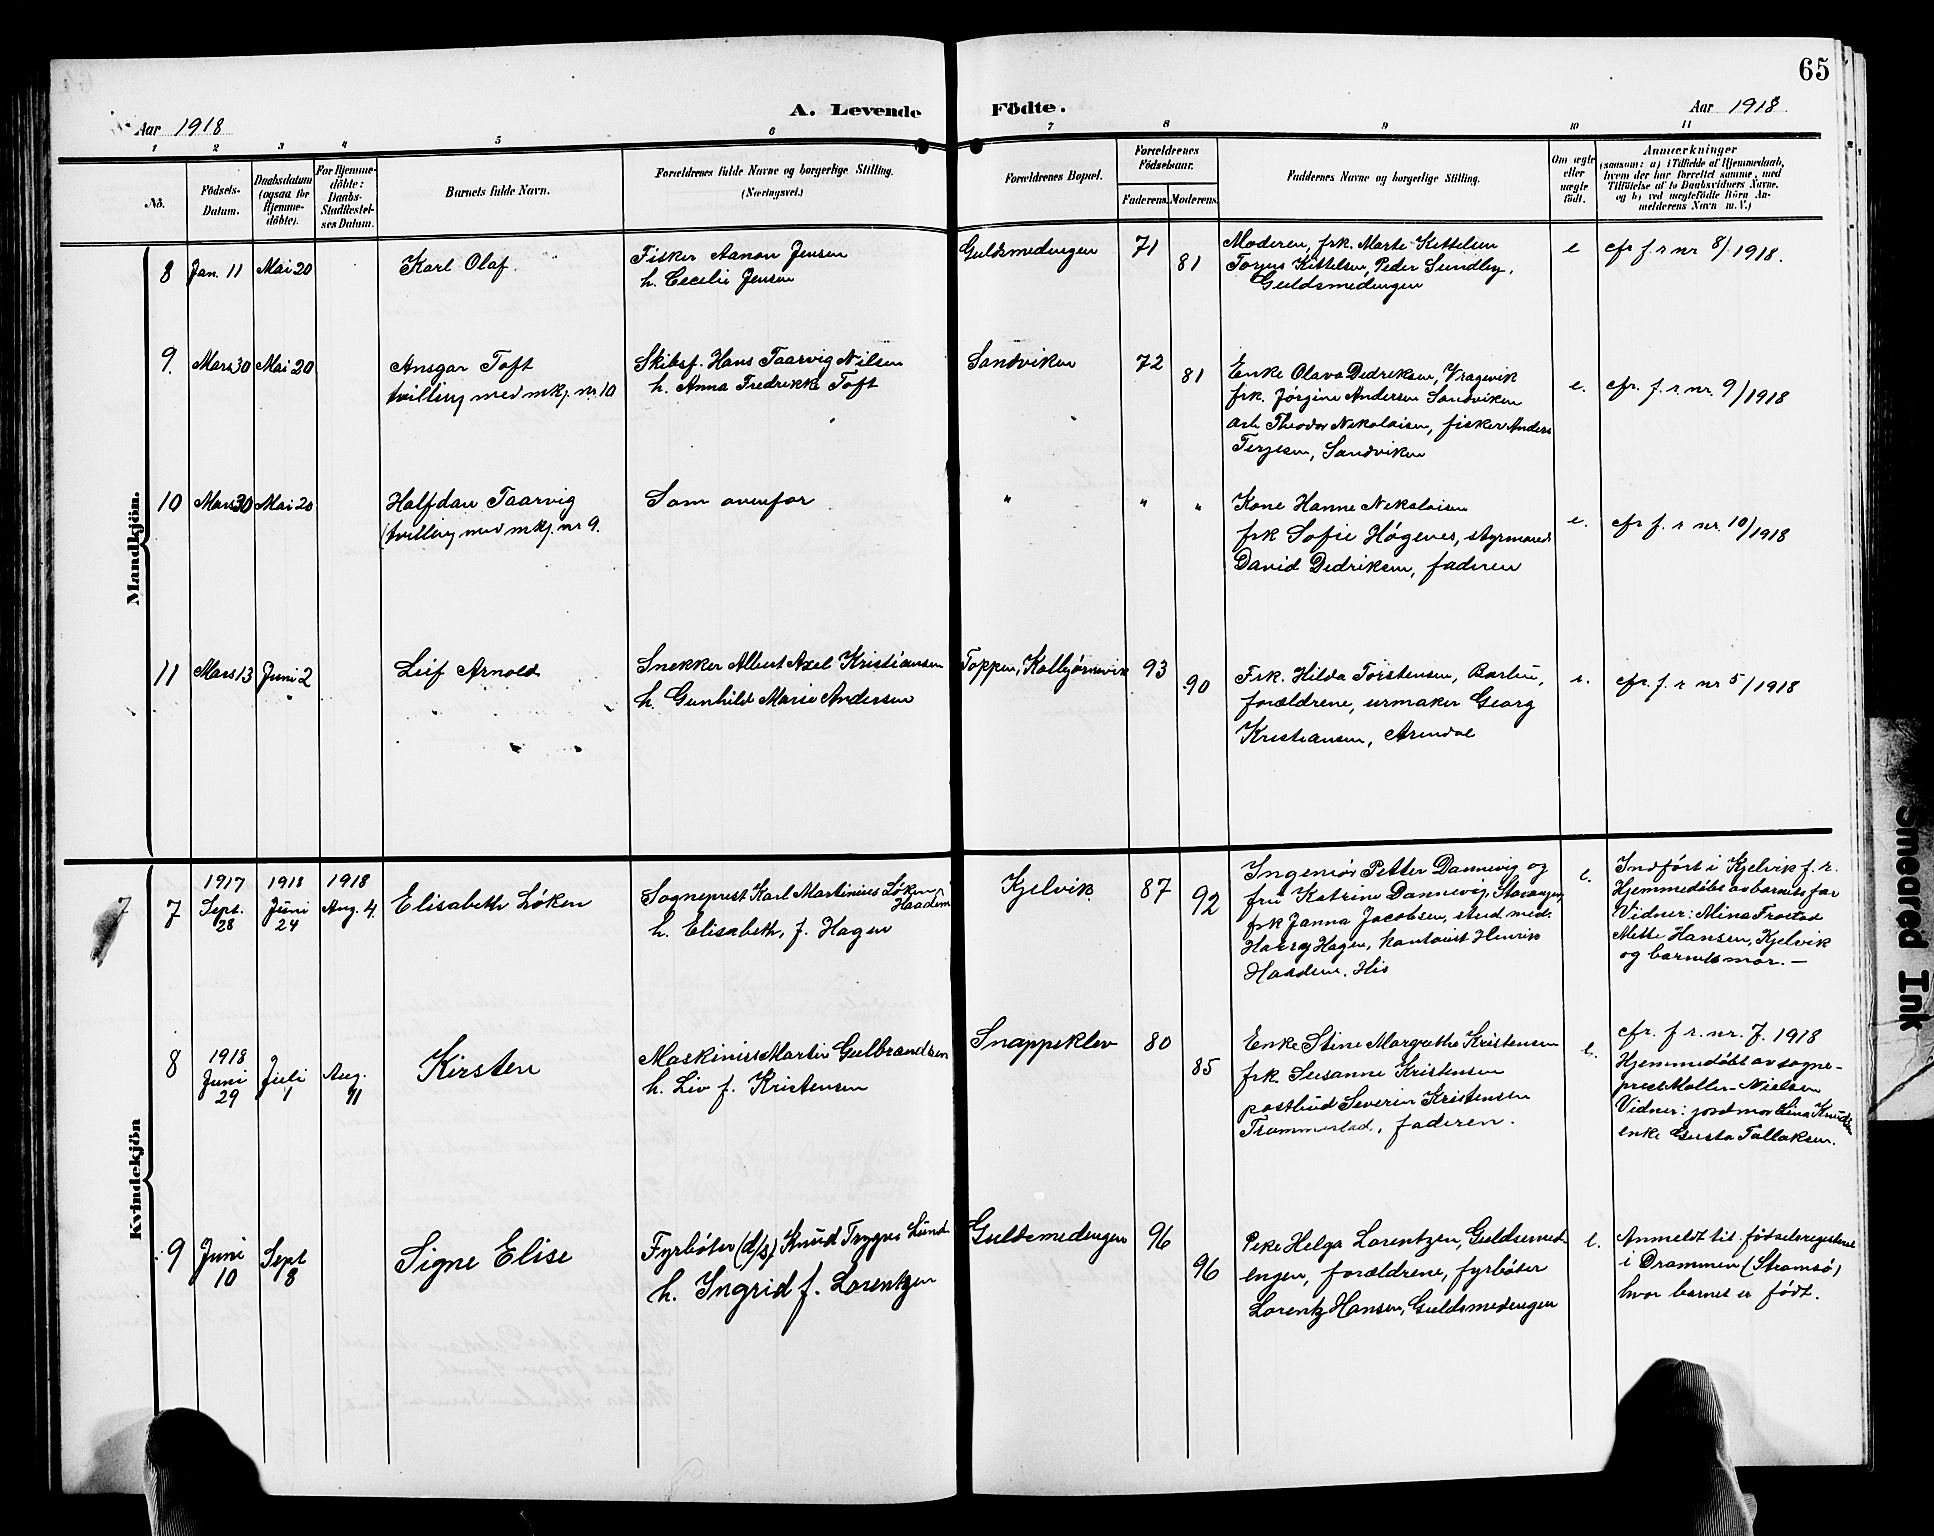 65
A. Levende Födte.
Aar 1918
Aar 1918
1 2 3 4 5 6 7 8 9 10 11
No.
Födsels-Datum.
Daabsdatum (ogsaa for Hjemmedöbte).
For Hjemmedöbte: Daabs-Stadfæstelses Datum.
Barnets fulde Navn.
Forældrenes fulde Navne og borgerlige Stilling.
(Næringsvei.)
Forældrenes Bopæl.
Forældrenes Födselsaar.
Faderens.
Moderens.
Faddernes Navne og borgerlige Stilling.
Om ægte eller uægte födt.
Anmærkninger
(saasom: a) i Tilfælde af Hjemmedaab, hvem der har forrettet samme, med Tilföielse af to Daabsvidners Navne, og b) ved uægtefödte Börn Anmelderens Navn m. V.)
Mandkjön.
8 Jan. 11 Mai 20
Karl Olaf.
Fisker Aanon Jensen
h. Cecilie Jensen
Guldsmedengen
71
81
Moderen, frk. Marte Kittelsen
Torjus Kittelsen, Peder Sundby,
Guldsmedengen
e
cfr f. r nr 8/1918.
9. Mars 30 Mai 20
Ansgar Toft
tvilling med mkj. nr. 10
Skibsf. Hans Taarvig Nilsen
h. Anna Fredrikke Toft
Sandviken
72
81
Enke Olava Dedriksen, Vragevik
frk. Jørgine Andersen Sandviken
arb. Theodor Nikolaisen, fisker Anders
Terjesen, Sandviken
e.
cfr. f. r. nr. 9/1918
10 Mars 30 Mai 20
Halfdan Taarvig
(tvilling med mkj. nr 9.
Som ovenfor
" " "
Kone Hanne Nikolaisen
frk Sofie Høgeves, styrmand
David Dedriksen, faderen
e.
cfr f. r nr. 10/1918
11 Mars 13 Juni 2
Leif Arnold
Snekker Albert Axel Kristiansen
h. Gunhild Marie Andersen
Toppen, Kolbjørnsvik
93
90
Frk. Hilda Torstensen, Barbu,
forældrene, urmaker Georg
Kristiansen, Arendal
e.
cfr. f. r nr 5/1918
Kvindekjön
7
7
1917 Sept. 28
1918 Juni 24
1918 Aug. 4.
Elisabeth Løken
Sogneprest Karl Martinius Løken,
Haadem
h. Elisabeth, f. Hagen
Kjelvik
87
92
Ingeniør Petter Dannevig og
fru Katrine Dannevig, Stavanger,
frk Janna Jacobsen, stud med.
Harry Hagen, kontorist Henrik
Haadem, His
e.
Indført i Kjelvik f. r.
Hjemmedøbt av barnets far
Vidner: Mina Frostad
Mette Hansen, Kjelvik
og barnets mor. —
8
1918 Juni 29
Juli 1
Aug. 11
Kirsten
Maskinist Martin Gulbrandsen
h. Liv f. Kristensen
Snappeklev
80
85
Enke Stine Margrethe Kristensen
frk. Susanne Kristensen
postbud Severin Kristensen
Trommestad, faderen.
e.
cfr. f. r. nr. 7. 1918
Hjemmedøbt av sogne-
prest Møller-Nielsen
Vidner: jordmor Lina Knudsen
enke Gusta Tallaksen.
9
Juni 10
Sept 8
Signe Elise
Fyrbøter (d/s) Knud Trygve Lunde
h. Ingrid f. Lorentzen
Guldsmedengen
96
96
Pike Helga Lorentzen, Guldsmed-
engen, forældrene, fyrbøter
Lorentz Hansen, Guldsmedengen
e.
Anmeldt til fødselsregisteret
i Drammen (Strømsø)
hvor barnet er født.
Smeared Ink